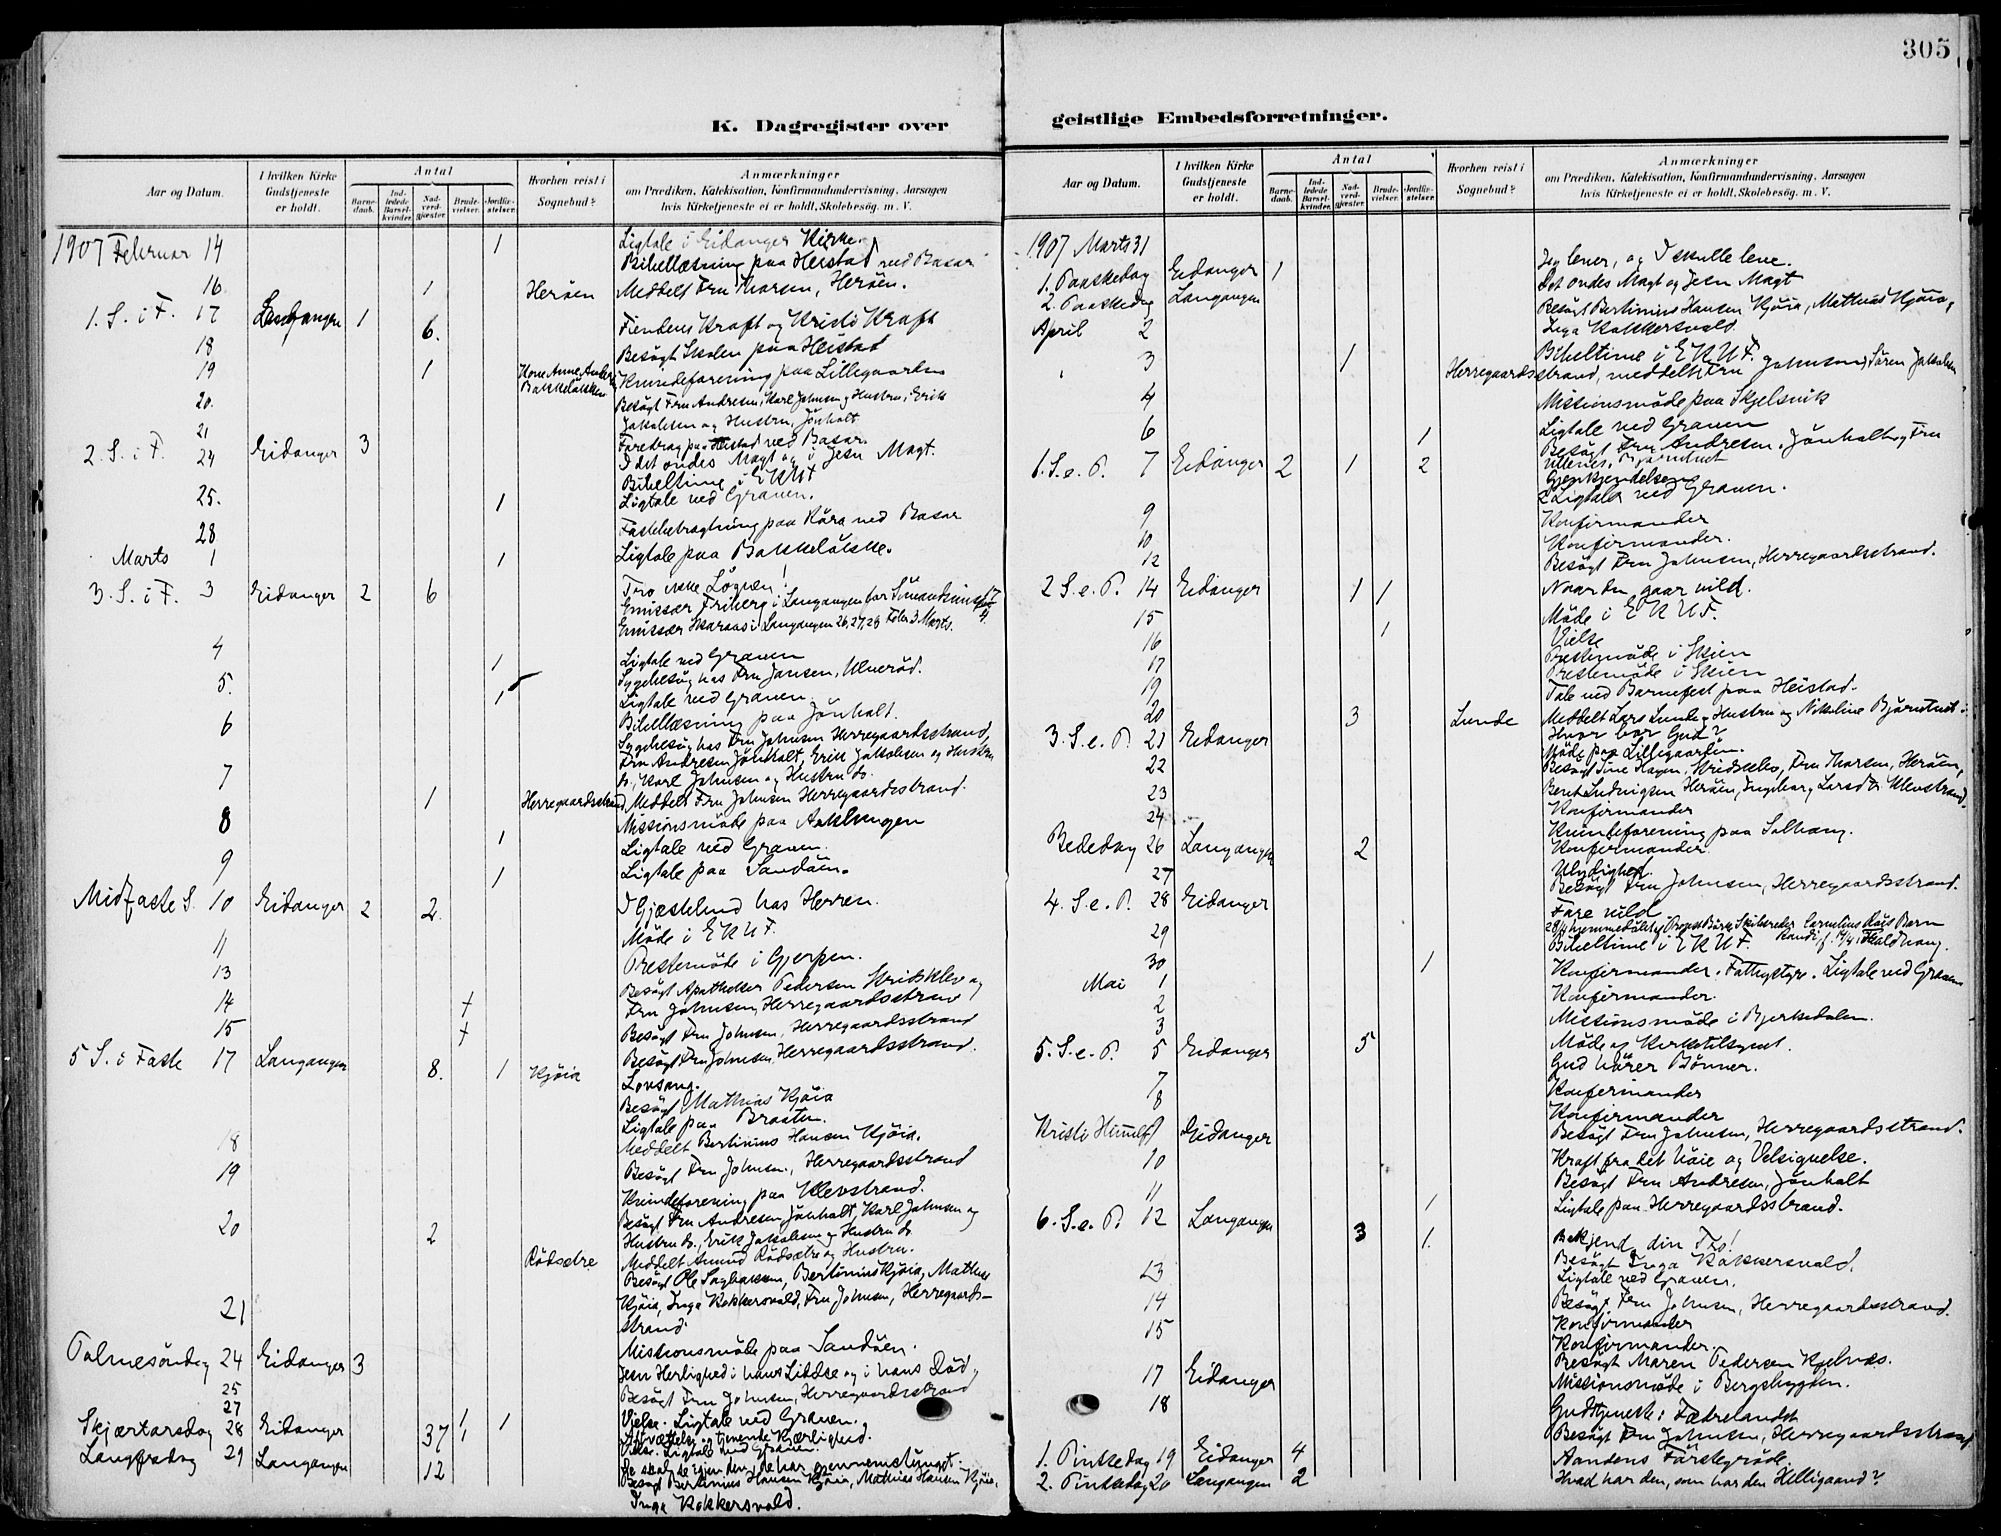 305
K. Dagregister over
Aar og Datum.
I hvilken Kirke Gudstjeneste er holdt.
Antal
Barnedaab.
Indledede Barselkvinder.
Nadverdgjester.
Brudevielser.
Jordfæstelser.
Hvorhen reist i Sognebud?
Anmærkninger
om Prædiken, Katekisation, Konfirmandundervisning, Aarsagen
hvis Kirketjeneste ei er holdt, Skolebesøg. m. V.
1907 Februar 14 1 Ligtale i Eidanger Kirke.
Bibellæsning paa Heistad ved Basar
16 1 Herøen Meddelt Fru Thorsen, Herøen.
1. S. i F. 17 Langangen 1 6. Fiendens Kraft og Kristi Kraft
18 Besøgt Skolen paa Heistad
19 1 Kone Anne Anders Bakkeløkken Kvindeforening paa Lillegaarden
20. Besøgt Fru Andresen, Karl Johnsen og Hustru, Erik
Jakobsen og Hustru, Jønholt
21 Foredrag paa Heistad ved Basar.
2. S. i F. 24 Eidanger 3 I det ondes Magt og i Jesu Magt.
Bibeltime i EKUF
25. 1 Ligtale ved Graven.
28 Fastebetragtning paa Røra ved Basar
Marts 1 1 Ligtale paa Bakkeløkke.
3. S. i F. 3 Eidanger 2 6 Tro ikke Løgnen!
Emissær Friberg i Langangen for Sømandsmis
Emissær Skaraas i Langangen 26, 27, 28 Feb. 3 Marts.
4 1 Ligtale ved Graven
Sygebesøg hos Fru Jansen, Ulverød.
5. 1 Ligtale ved Graven
Bibellæsning paa Jønholt.
6 Sygebesøg hos Fru Johnsen Herregaardsstrand,
Fru Andresen Jønholt, Erik Jakobsen og Hustru
do., Karl Johnsen og Hustru do.
7 1 Herregaardsstrand Meddelt Fru Johnsen Herregaardsstrand.
8 Missionsmøde paa Aaklungen
1 Ligtale ved Graven.
9 1 Ligtale paa Sandøen.
Midfaste S. 10 Eidanger 2 2. I Gjæstebud hos Herren.
Møde i EKUF.
11 Prestemøde i Gjerpen.
13 Besøgt Apotheker Pedersen Skridsklev og
14 Fru Johnsen, Herregaardsstrand
15 Besøgt Fru Johnsen, Herregaardsstrand
Besøgt Fru Johnsen, Herregaardsstrand.
5 S. i Faste 17 Langangen 8. 1 Kjøia Lovsang.
Besøgt Mathias Kjøia
Ligtale paa Braaten.
Meddelt Bertinius Hansen Kjøia.
18 Besøgt Fru Johnsen, Herregaardsstrand
19 Kvindeforening paa Klevstrand.
20 2 Besøgt Fru Andresen Jønholt, Karl Johnsen og
Hustru do., Erik Jakobsen og Hustru do.
Rødsætre Meddelt Amund Rødsætre og Hustru.
Besøgt Ole Sagbakken, Bertinius Kjøia, Mathias
21 Kjøia, Inga Kokkersvold, Fru Johnsen, Herregaards-
strand.
Missionsmøde paa Sandøen.
Palmesøndag 24 Eidanger 3 Jesu Herlighed i hans Lidelse og i hans Død,
25 Besøgt Fru Johnsen, Herregaardsstrand
27 1 1 Vielse. Ligtale ved Graven.
Skjærtorsdag 28 Eidanger 37 1 Afvættelse og tjenende Kjærlighed.
Vielse. Ligtale ved Graven.
Langfredag 29 Langangen 12 Se skal de igjen den, de har gjennemstunget.
Besøgt Bertinius Hansen Kjøia, Mathias Hansen Kjøia,
Inga Kokkersvold.
geistlige Embedsforretninger.
Aar og Datum.
I hvilken Kirke Gudstjeneste er holdt.
Antal
Barnedaab.
Indledede Barselkvinder.
Nadverdgjester.
Brudevielser.
Jordfæstelser.
Hvorhen reist i Sognebud?
Anmærkninger
om Prædiken, Katekisation, Konfirmandundervisning, Aarsagen
hvis Kirketjeneste ei er holdt, Skolebesøg. m. V.
1907 Marts 31
1. Paaskedag Eidanger 1 Jeg lever, og I skulle leve.
2. Paaskedag Langangen Det ondes Magt og Jesu Magt
Besøgt Bertinius Hansen Kjøia, Mathias Kjøia,
Inga Kokkersvold.
April 2 Bibeltime i EKUF.
3 1 Herregaardsstrand, meddelt Fru Johnsen, Søren Jakobsen
4 Missionsmøde paa Skjelsvik
6 1 Ligtale ved Graven
Besøgt Fru Andresen, Jønholt og Fru
1. S. e. P. 7 Eidanger 2 1 2 Gjenkjendelsen
2 Ligtaler ved Graven.
9 Konfirmander
10 Konfirmander.
12 Besøgt Fru Johnsen, Herregaardsstrand.
2 S. e. P. 14 Eidanger 1 1 Naar du gaar vild.
Møde i EKUF.
15 1 Vielse
16 Prestemøde i Skien
17 Prestemøde i Skien
19 Tale ved Barnefest paa Heistad.
20 3 Lunde Meddelt Lars Lunde og Hustru og Nikoline Bjørntvet
3. S. e. P. 21 Eidanger Hvor bor Gud?
Møde paa Lillegaarden.
22 Besøgt Sine Hagen, Skridsklev, Fru Thorsen, Herøen,
Berit Ludvigsen Herøen, Ingeborg Larsd. Klevstrand.
23 Konfirmander
24 Kvindeforening paa Solhaug.
Konfirmander.
Bededag 26 Langangen 2 Ulydighed.
27 Besøgt Fru Johnsen, Herregaardsstrand.
4. S. e. P. 28 Eidanger Fare vild
Bibeltime i EKUF.
29
30 1 Konfirmander. Fattigstyre. Ligtale ved Graven
Mai 1 Konfirmander.
2 Missionsmøde i Bjerkedalen.
3 Møde og Kirketilsynet.
5. S. e. P. 5 Eidanger 5 Gud hører Bønner.
7 Konfirmander
8 Konfirmander
Besøgt Fru Johnsen, Herregaardsstrand.
Kristi Himmelf Eidanger Kraft fra det høie og Velsignelse.
10 Besøgt Fru Andresen, Jønholt
11 1 Ligtale paa Herregaardsstrand.
6. S. e. P. 12 Langangen 3 1. Bekjend din Tro!
Besøgt Inga Kokkersvold.
Ligtale ved Graven.
13 Besøgt Fru Johnsen, Herregaardsstrand.
14 Konfirmander
15 Konfirmander.
Besøgt Maren Pedersen Kjelnæs.
Missionsmøde i Bergsbygden.
17 Eidanger Gudstjeneste: Fædrelandet
18 Besøgt Fru Johnsen, Herregaardsstrand
1. Pintsedag 19 Eidanger 4 Aandens Førstegrøde.
2. Pintsedag 20 Langangen 2 Hvad har den, som har den Helligaand?